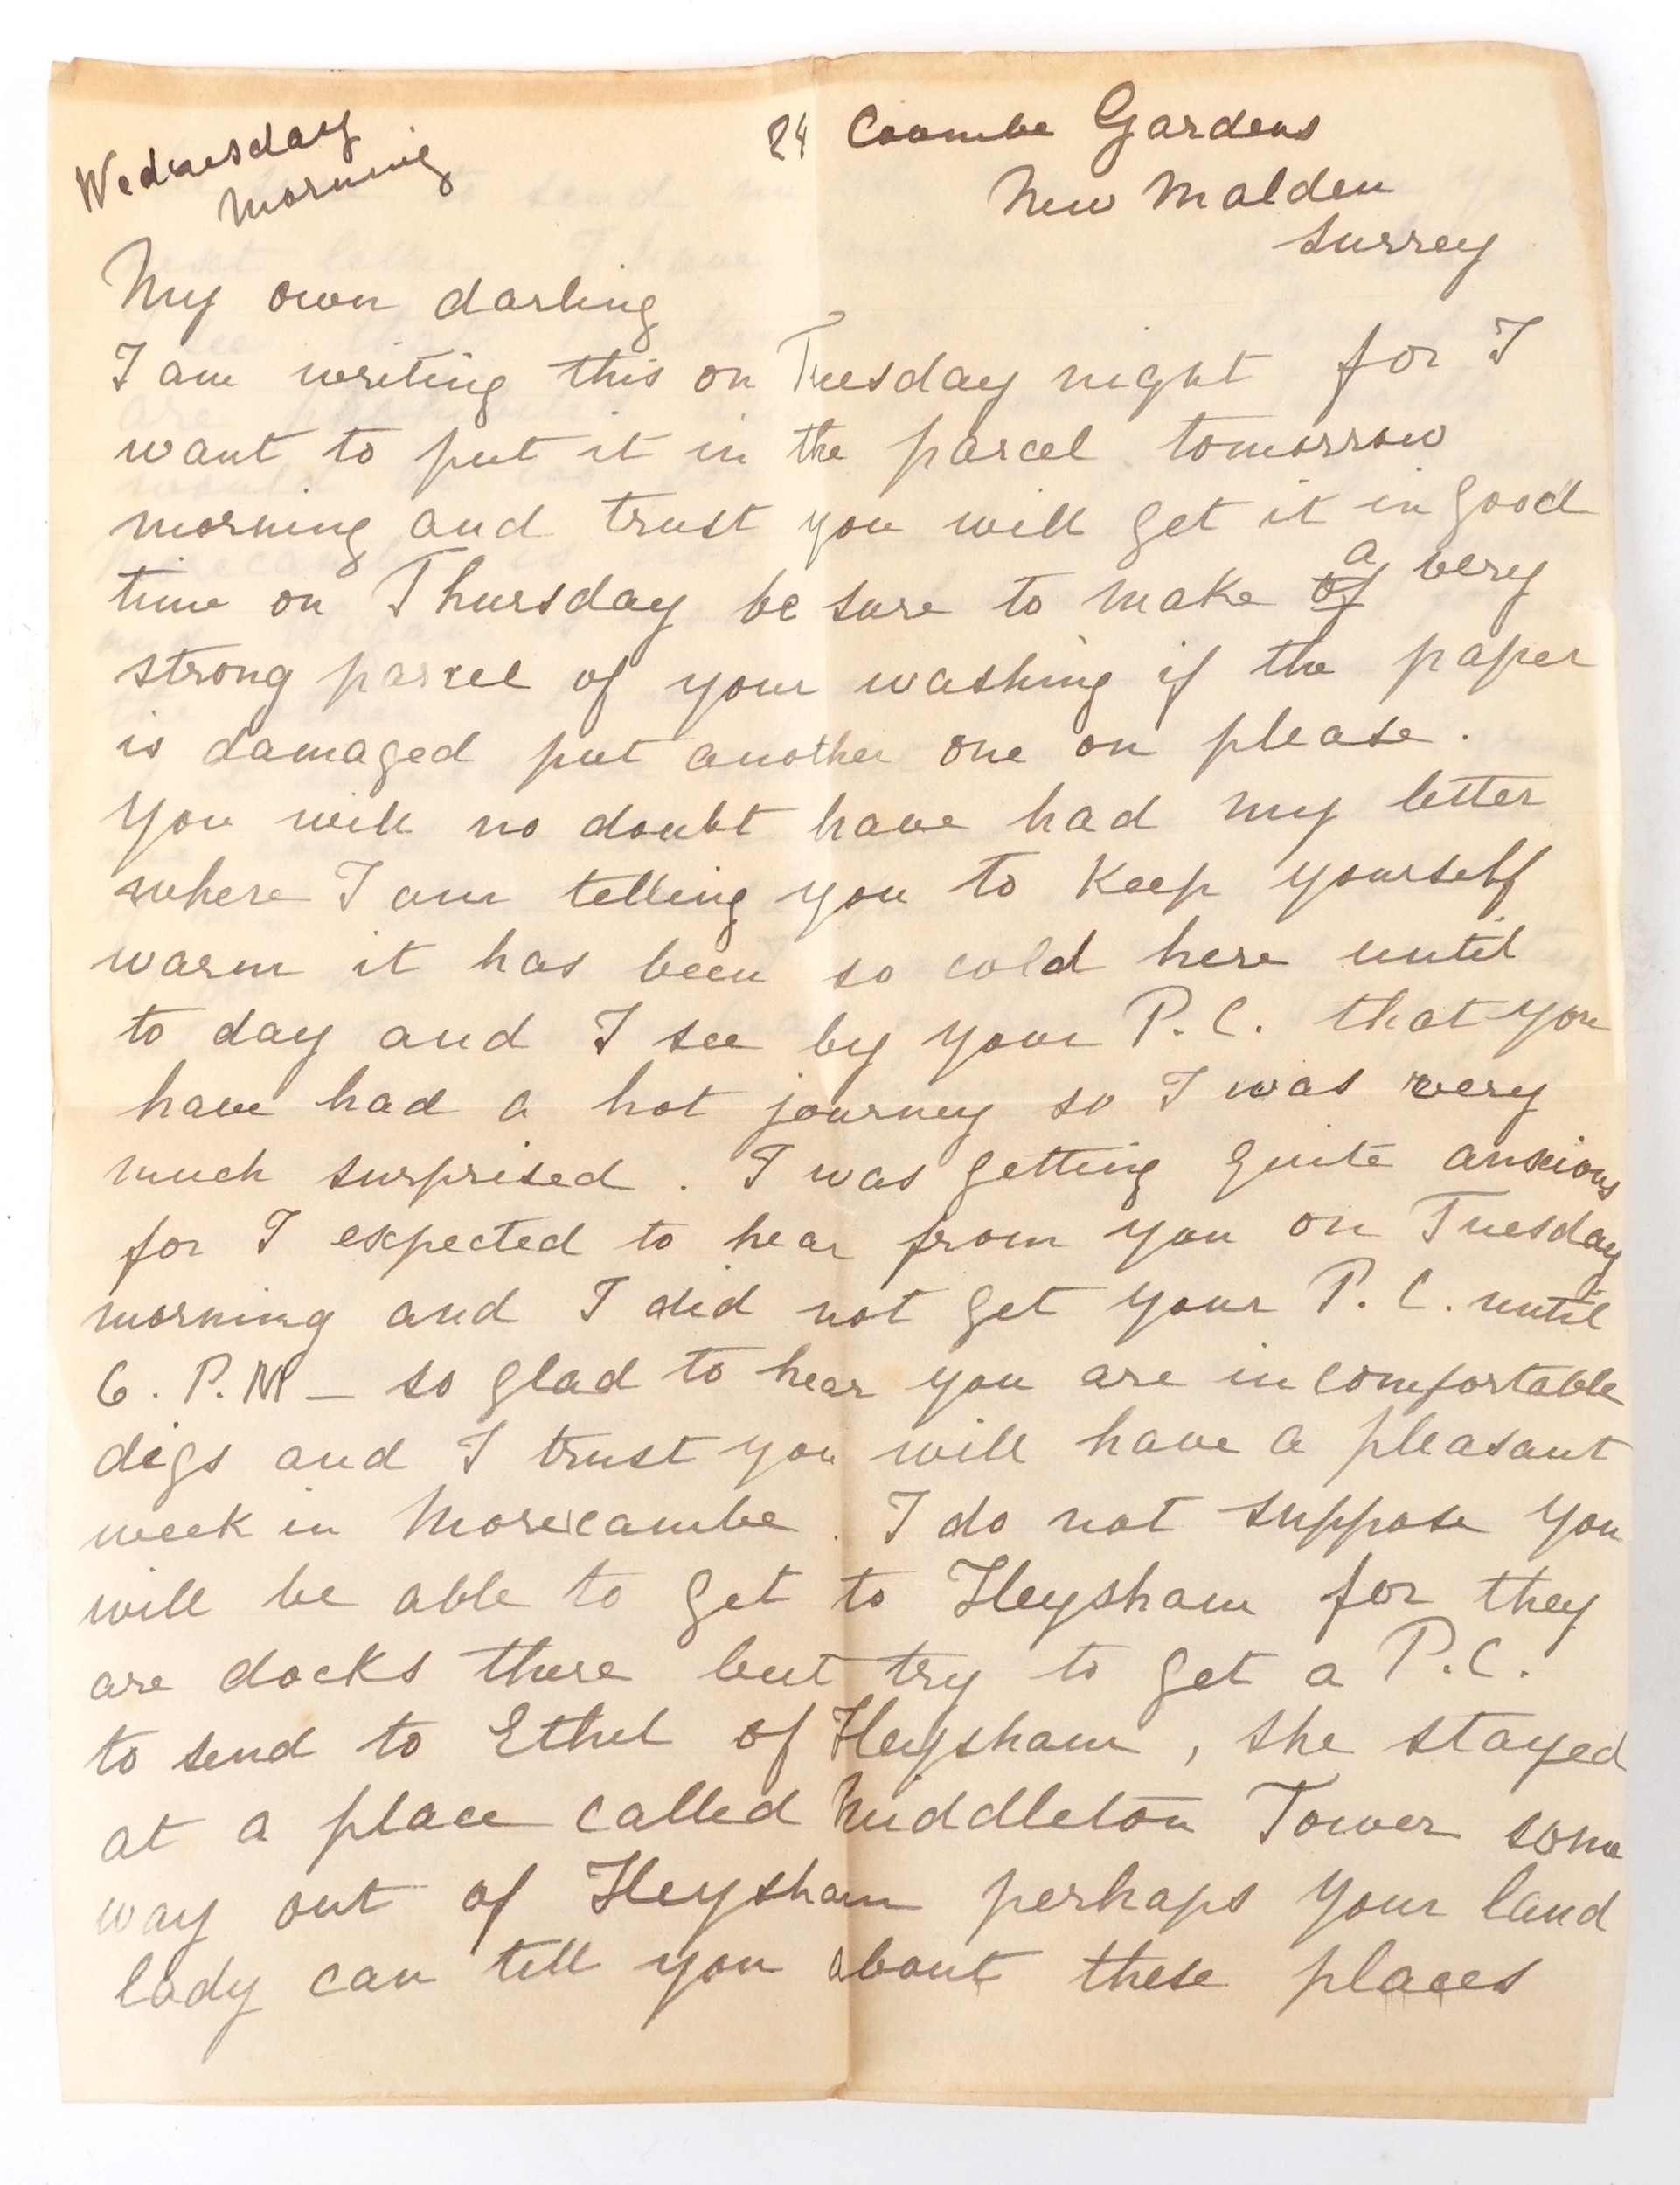 Wednesday
Morning
24 Coombe Gardens
New Malden
Surrey
My own darling
I am writing this on Tuesday night for I
want to put it in the parcel tomorrow
morning and trust you will get it in good
time on Thursday be sure to make of a very
strong parcel of your washing if the paper
is damaged put another one on please.
You will no doubt have had my letter
where I am telling you to keep yourself
warm it has been so cold here until
to day and I see by your P.C. that you
have had a hot journey so I was very
much surprised. I was getting quite anxious
for I expected to hear from you on Tuesday
morning and I did not get your P.C. until
6. P.M – so glad to hear you are in comfortable
digs and I trust you will have a pleasant
week in Morecambe. I do not suppose you
will be able to get to Heysham for they
are docks there but try to get a P.C.
to send to Ethel of Heysham, she stayed
at a place called Middleton Tower some
way out of Heysham perhaps your land
lady can tell you about these places